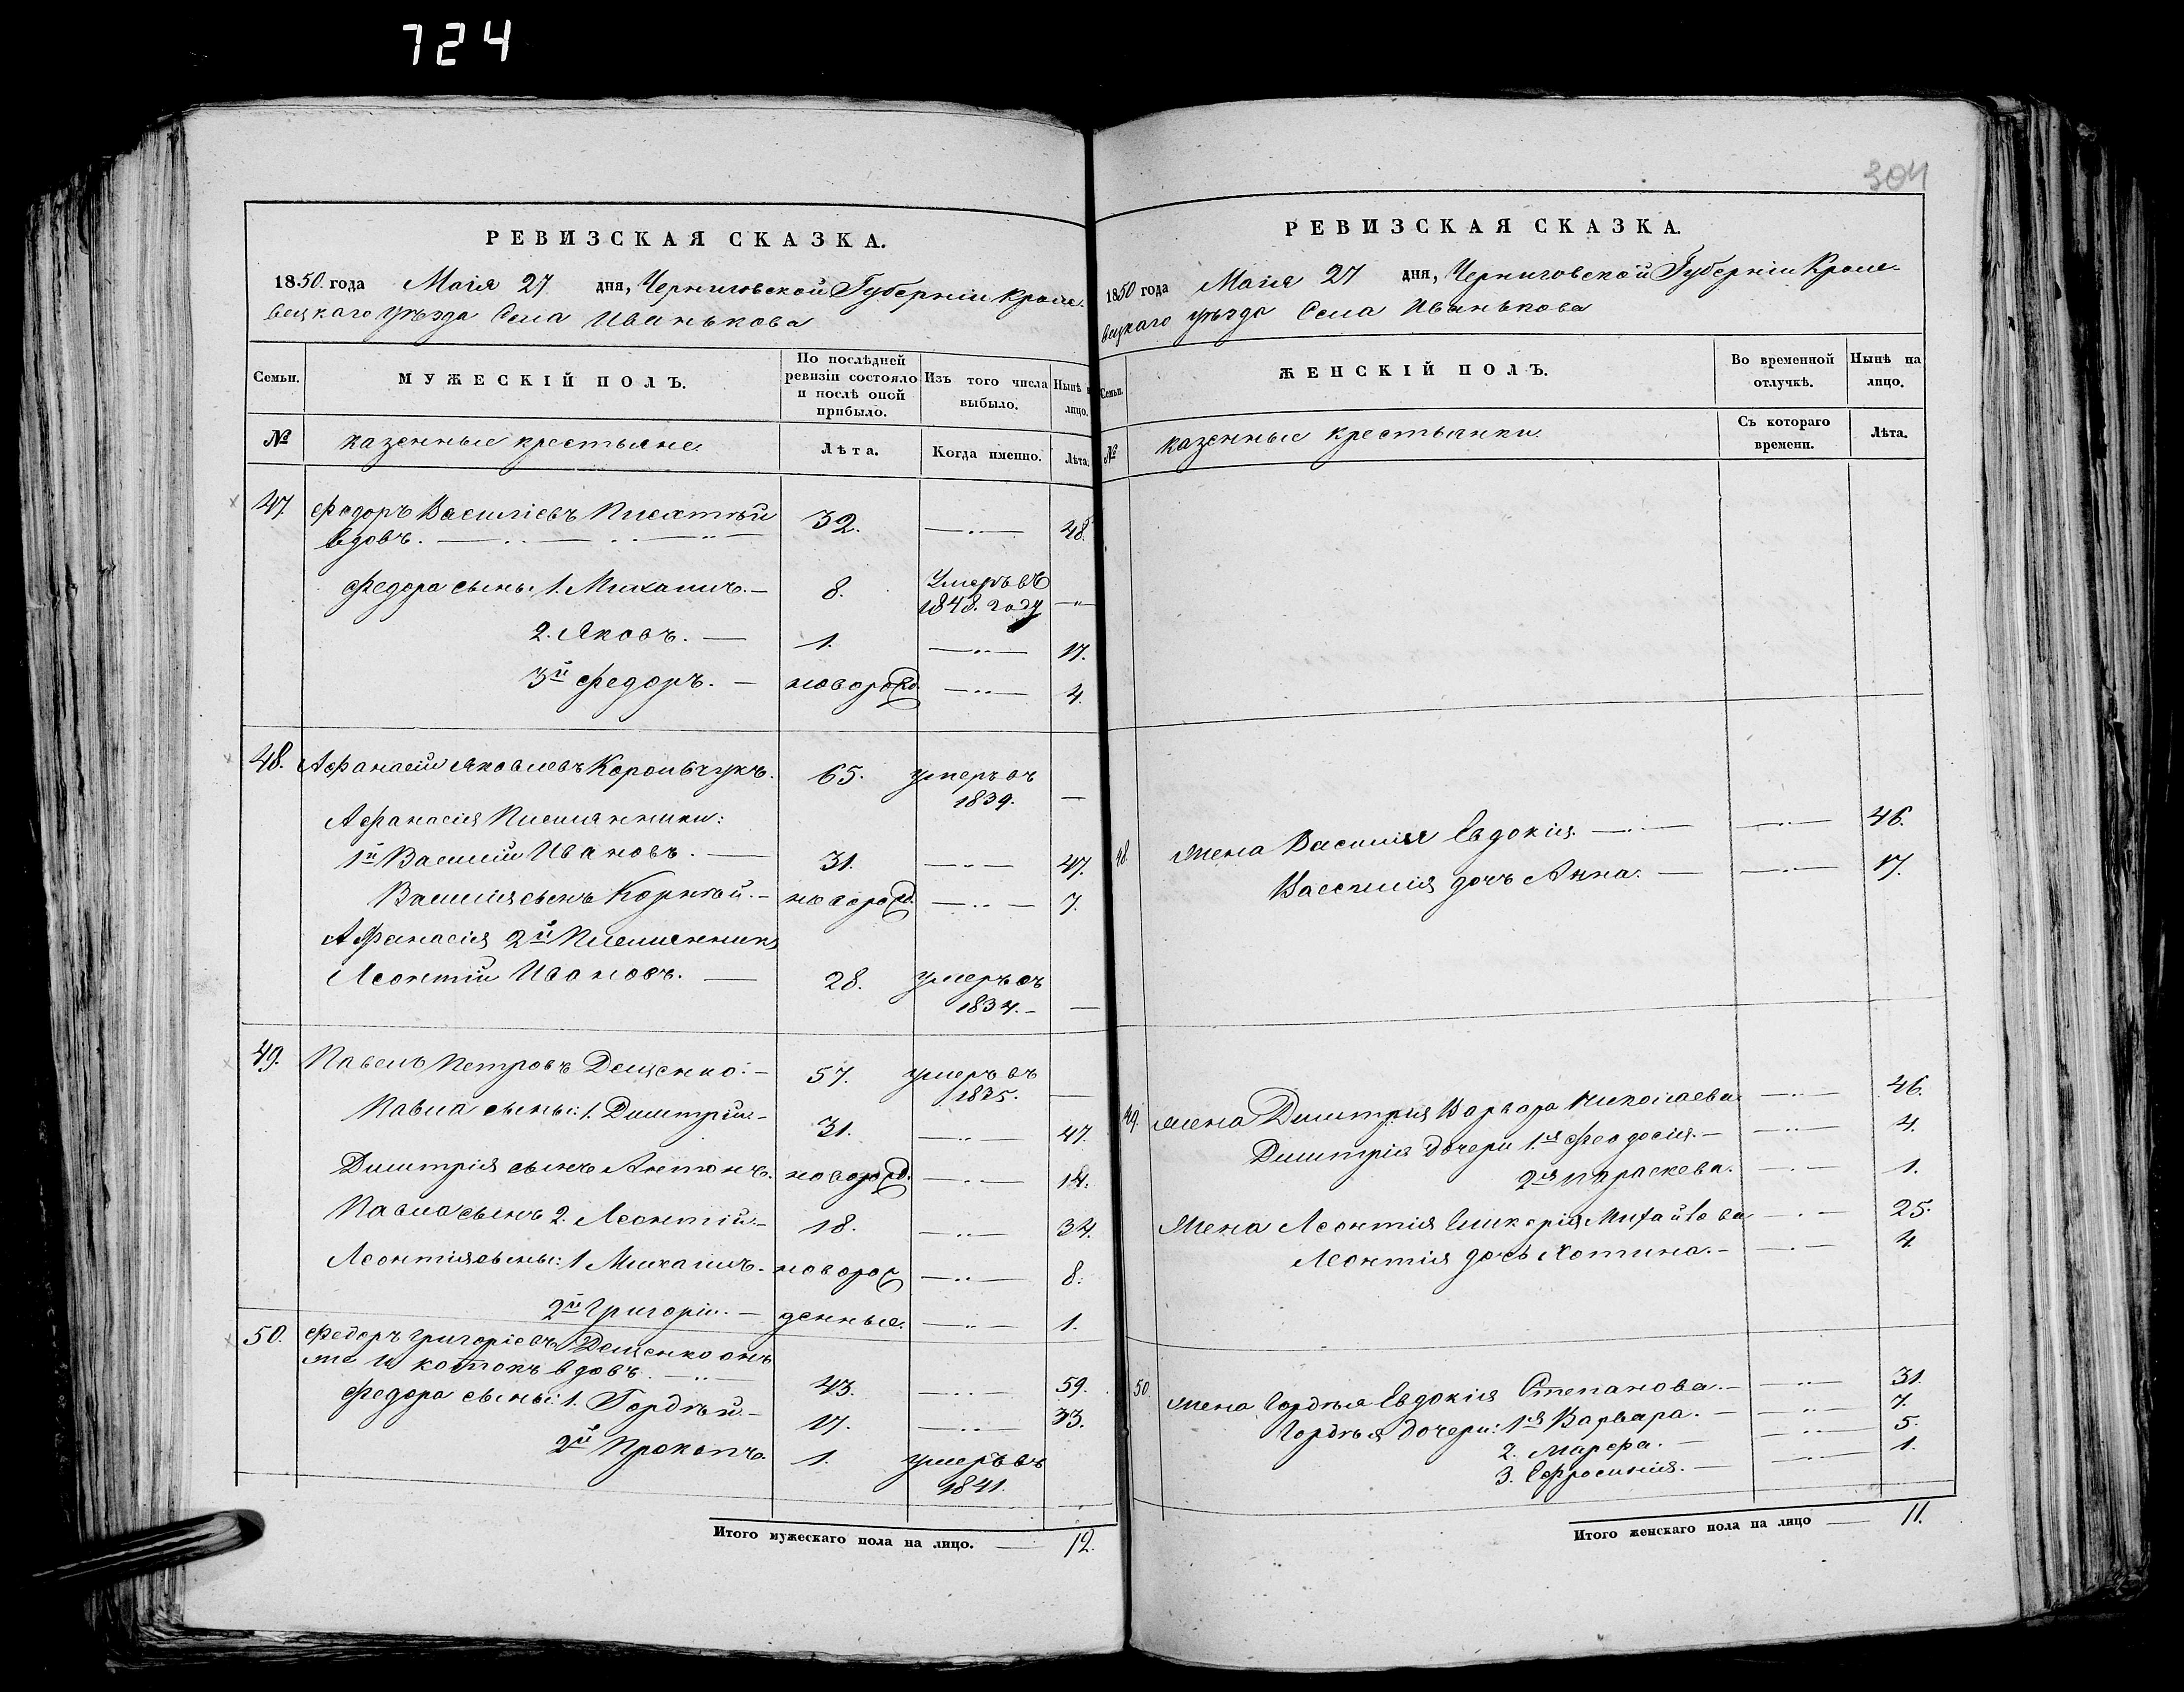 724
304
РЕВИЗСКАЯ СКАЗКА.
1850. года Маія 27 дня, Черниговской Губерніи Кроле-
вецкаго уѣзда Села Иванькова
Семьи.
МУЖЕСКІЙ ПОЛЪ.
По послѣдней
ревизіи состояло
и послѣ оной
прибыло.
Изъ того числа
выбыло.
Нынѣ н
лицо.
№
казенные крестьяне.
Лѣта.
Когда именно.
Лѣта.
47. Федоръ Василіевъ Писатый
вдовъ. 32. 48.
Федора сыны 1. Михаилъ. 8. Умеръ въ
1848. году
2. Яковъ. 1. 17.
3й Федоръ. новорожд. 4.
48. Афанасій Яковлевъ Корольчукъ. 65. умеръ въ
1839.
Афанасія Племянники:
1й Василій Ивановъ. 31. 47.
Василія сынъ Корнѣй. новорожд. 7.
Афанасія 2й Племянникъ
Леонтій Ивановъ. 28. умеръ въ
1834.
49. Павелъ Петровъ Дещенко. 57. умеръ въ
1835.
Павла сыны: 1. Димитрій 31. 47.
Димитрія сынъ Антонъ. новорожд. 14.
Павла сынъ 2. Леонтій 18. 34.
Леонтія сыны: 1 Михаилъ. новорож 8.
2й Григорій. денные. 1.
50. Федоръ Григоріевъ Дещенко онъ
же и котокъ вдовъ. 43. 59.
Федора сыны: 1. Гордѣй 17. 33.
2й Прокопъ. 1. умеръ въ
1841.
Итого мужескаго пола на лицо. 12.
РЕВИЗСКАЯ СКАЗКА.
1850 года Маія 27 дня, Черниговской Губерніи Кроле-
вецкаго уѣзда Села Иванькова
Семьи.
ЖЕНСКІЙ ПОЛЪ.
Во временной
отлучкѣ.
Нынѣ на
лицо.
№
казенные крестьянки.
Съ котораго
времени.
Лѣта.
48. Жена Василия Евдокія. 46.
Василія дочь Анна. 17.
49. Жена Димитрия Варвара Николаева 46.
Димитрія дочери 1я Феодосія. 4.
2я Параскева. 1.
Жена Леонтія Гликерія Михайлова 25.
Леонтія дочь Хотина. 4
50. Жена Гордѣя Евдокія Степанова. 31.
Гордѣя дочери: 1я Варвара. 7.
2. Марфа. 5.
3. Ефросинія. 1.
Итого женскаго пола на лицо 11.